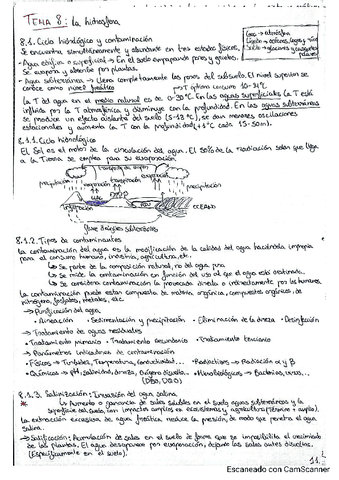 TEMA 8: La hidrosfera
8.1. Ciclo hidrológico y contaminación
Se encuentra simultáneamente y abundante en tres estados físicos,
Gas → atmósfera
Líquido → océanos, lagos y ríos
Sólido → glaciares y casquetes polares
- Agua edáfica o superficial → En el suelo empapando poros y grietas.
Se evapora y absorbe por plantas.
- Agua subterránea → Llena completamente los poros del subsuelo. El nivel superior se
conoce como nivel freático
La T del agua en el medio natural es de 0-30ºC. En las aguas superficiales la T está
influida por la T atmosférica y disminuye con la profundidad. En las aguas subterráneas
se produce un efecto aislante del suelo (5-13ºC), se dan menores oscilaciones
estacionales y aumenta la T con la profundidad (+1ºC cada 15-30m).
8.1.1. Ciclo hidrológico
El Sol es el motor de la circulación del agua. El 30% de la radiación solar que llega
a la Tierra se emplea para su evaporación.
Precipitación
evaporación
transpiración
evaporación
precipitación
infiltración
RÍO
OCÉANO
flujo de aguas subterráneas
8.1.2. Tipos de contaminantes
La contaminación del agua es la modificación de la calidad del agua haciéndola impropia
para el consumo humano, industria, agricultura, etc.
↳ Se parte de la composición natural, no del agua pura
↳ Se mide la contaminación en función del uso al que el agua está destinada.
↳ Se considera contaminación la provocada directa o indirectamente por los humanos.
La contaminación puede estar compuesta de materia orgánica, compuestos orgánicos, de
nitrógeno, fosfatos, metales, etc.
→ Purificación del agua
• Aireación • Sedimentación y precipitación • Eliminación de la dureza • Desinfección
→ Tratamiento de aguas residuales
• Tratamiento primario • Tratamiento secundario • Tratamiento terciario
→ Parámetros indicadores de contaminación
• Físicos → Turbidez, Temperatura, conductividad... • Radiactivos → Radiación α y β
• Químicos → pH, salinidad, dureza, oxígeno disuelto... • Microbiológicos → Bacterias, virus...
(DBO, DQO)
8.1.3. Salinización: Invasión del agua salina
↳ Aumento o ganancia de sales solubles en el suelo aguas subterráneas y la
superficie del suelo, con impactos complejos en ecosistemas y agricultura (término + amplio).
La extracción excesiva de agua freática reduce la presión, de modo que penetra el agua
salina.
→ Salificación: Acumulación de sales en el suelo de forma que ya imposibilita el crecimiento
de las plantas. El agua desaparece por evaporación, dejando las sales antes disueltas.
(Específicamente en el suelo).
11.
Escaneado con CamScanner